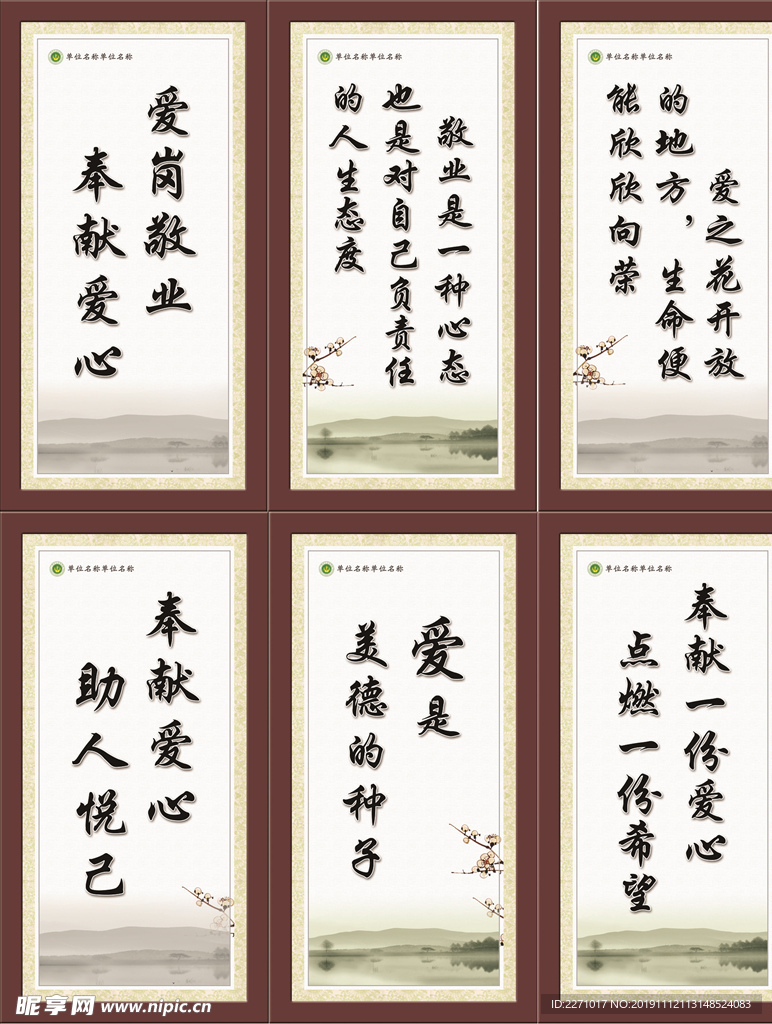 单位名称单位名称
爱岗敬业
奉献爱心
单位名称单位名称
敬业是一种心态
也是对自己负责任
的人生态度
单位名称单位名称
爱之花开放
的地方，生命便
能欣欣向荣
单位名称单位名称
奉献爱心
助人悦己
单位名称单位名称
爱是
美德的种子
单位名称单位名称
奉献一份爱心
点燃一份希望
昵享网 www.nipic.cn
ID:2271017 NO:20191112113148524083